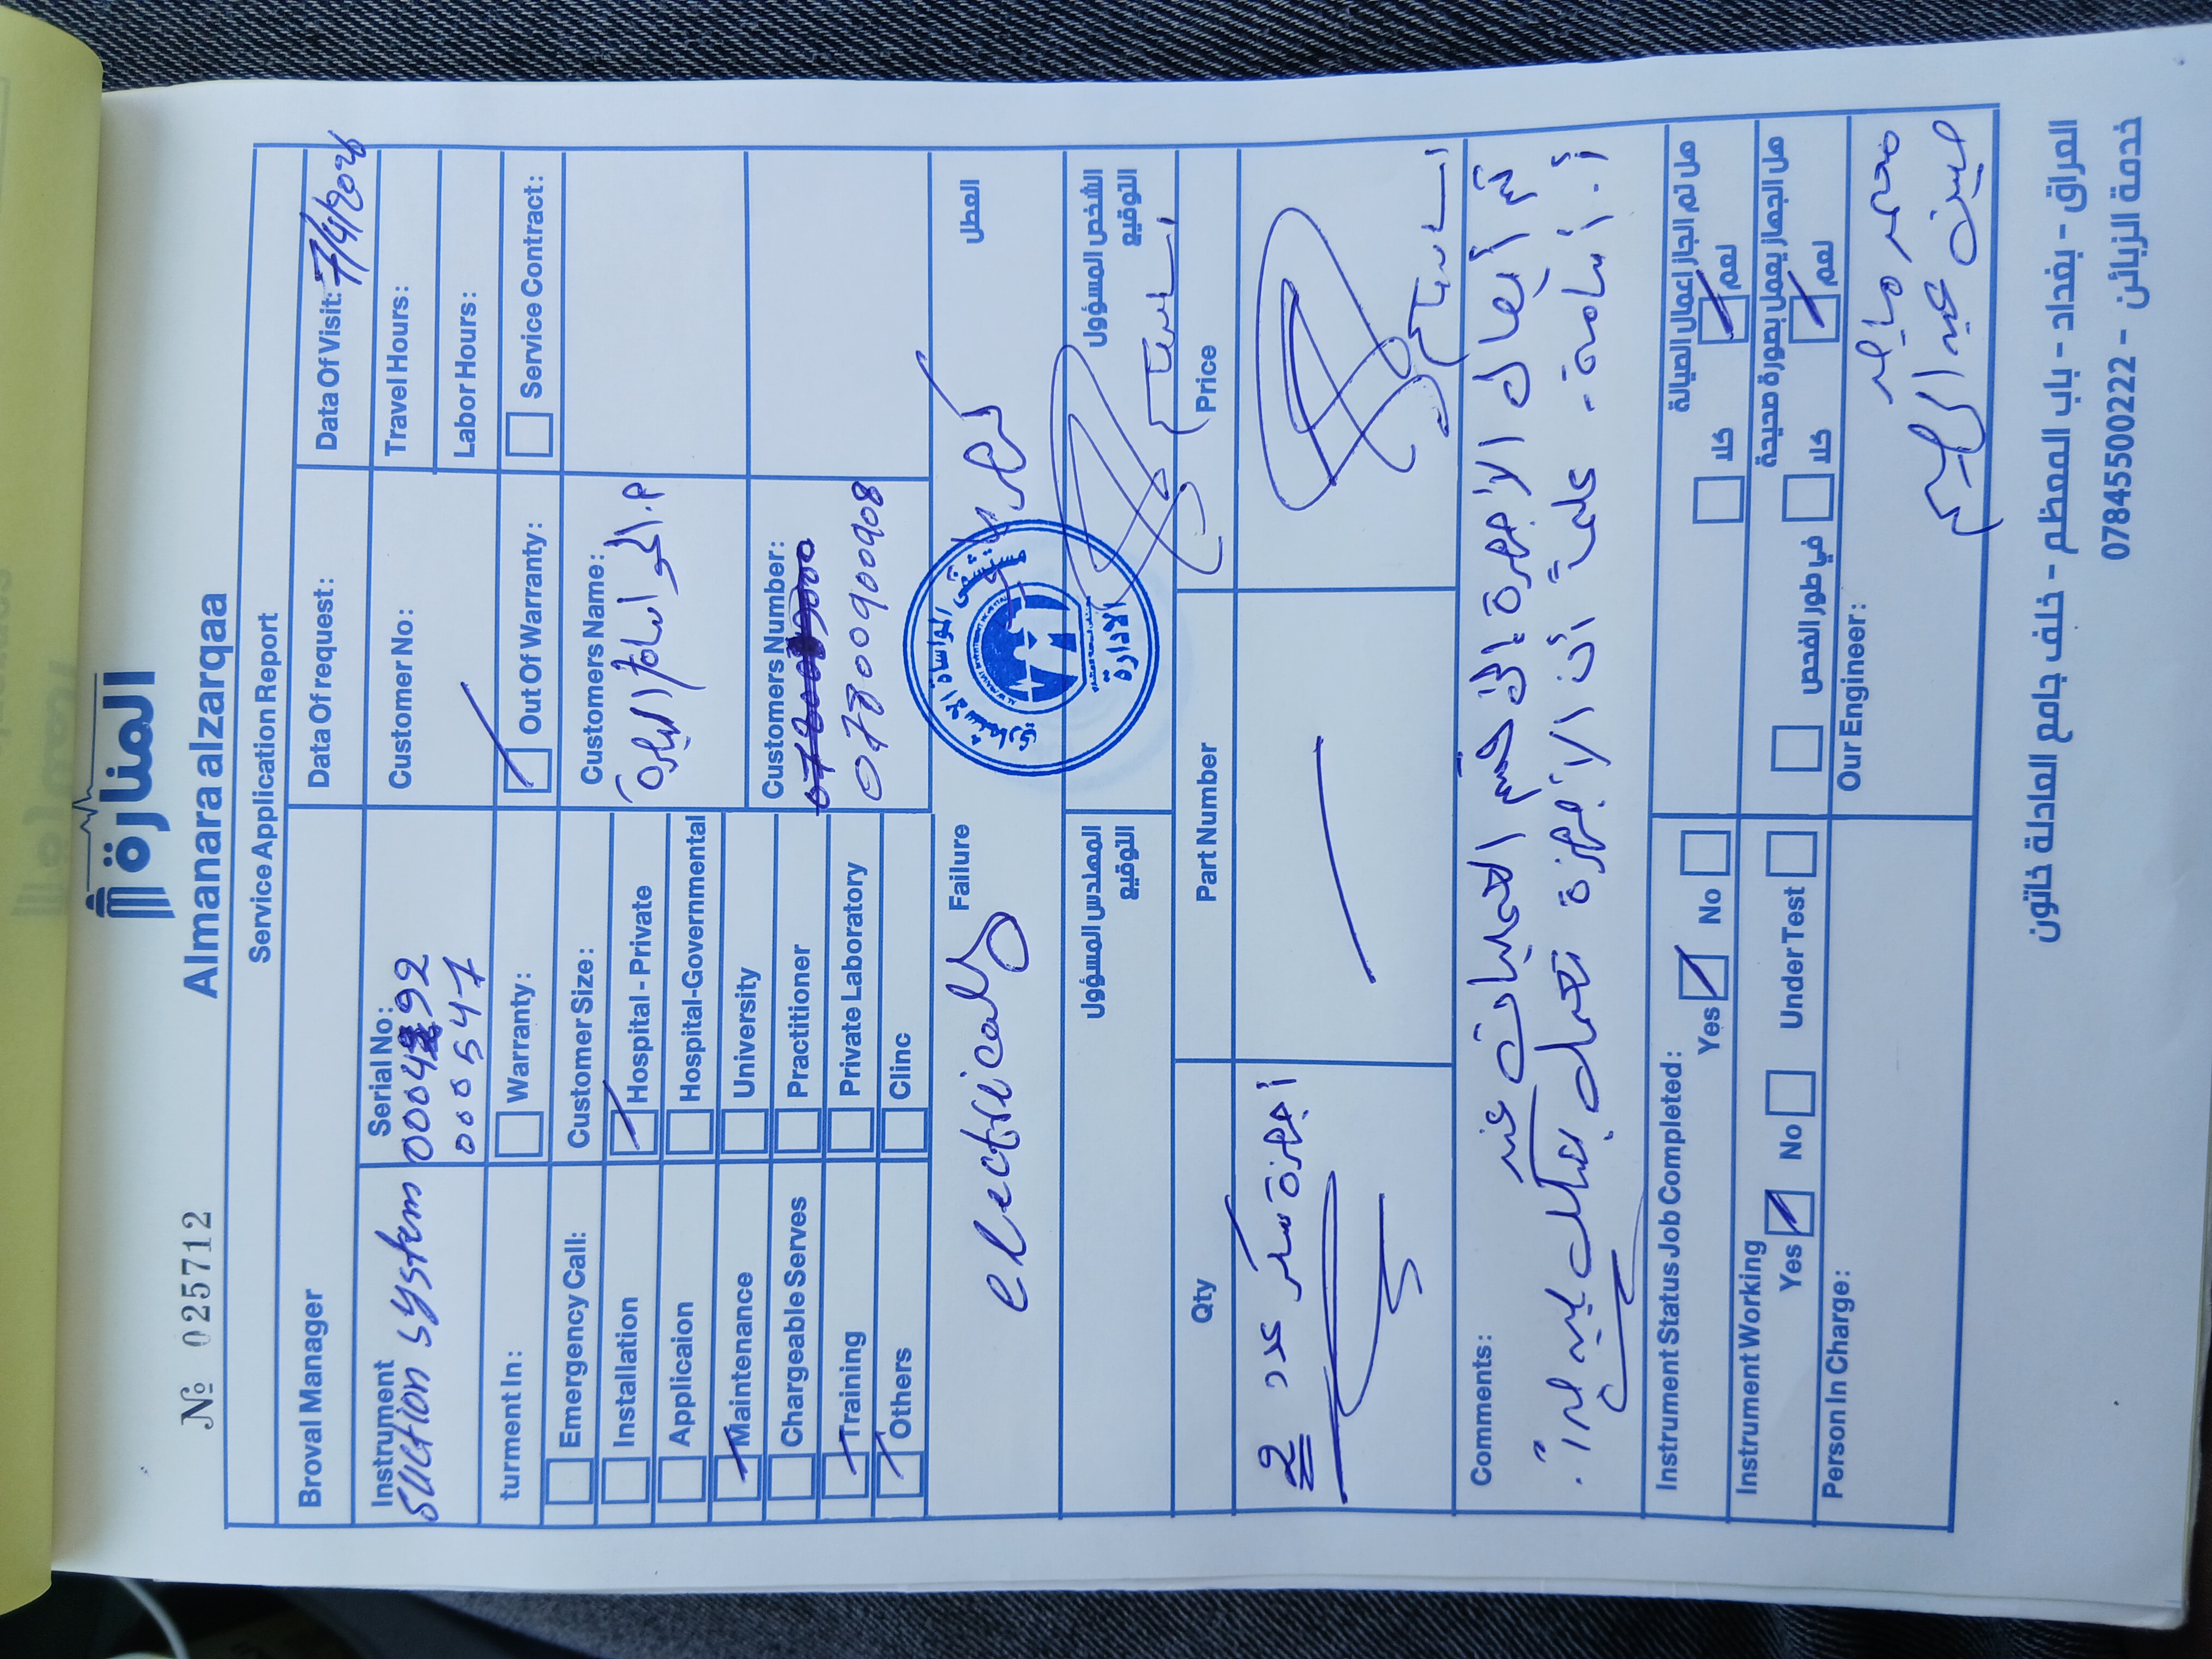 № 025712
المنارة
Almanara alzarqaa
Service Application Report
Broval Manager
Data Of request:
Data Of Visit: 7/4/2026
Instrument
Suction system
Serial No:
000492
000547
Customer No:
Travel Hours:
Labor Hours:
turment In:
Warranty:
Out Of Warranty:
Service Contract:
Emergency Call:
Installation
Applicaion
Maintenance
Chargeable Serves
Training
Others
Customer Size:
Hospital - Private
Hospital-Governmental
University
Practitioner
Private Laboratory
Clinc
Customers Name:
Customers Number:
07800900908
Failure
العطل
electrical
مستشفى المواساة الاستثماري
الادارة
المهندس المسؤول
التوقيع
الشخص المسؤول
التوقيع
Qty
Part Number
Price
أجهزة سكر عدد 2
Comments:
تم أيصال الأجهزة إلى قسم العمليات عند
أ. أسامة. علماً أن الأجهزة تعمل بشكل جيد جداً.
Instrument Status Job Completed:
Yes
No
هل تم انجاز اعمال الصيانة
كلا
نعم
Instrument Working
Yes
No
Under Test
هل الجهاز يعمل بصورة صحيحة
في طور الفحص
كلا
نعم
Person In Charge:
Our Engineer:
العراق - بغداد - باب المعظم - خلف جامع العادلة خاتون
خدمة الزبائن - 07845500222